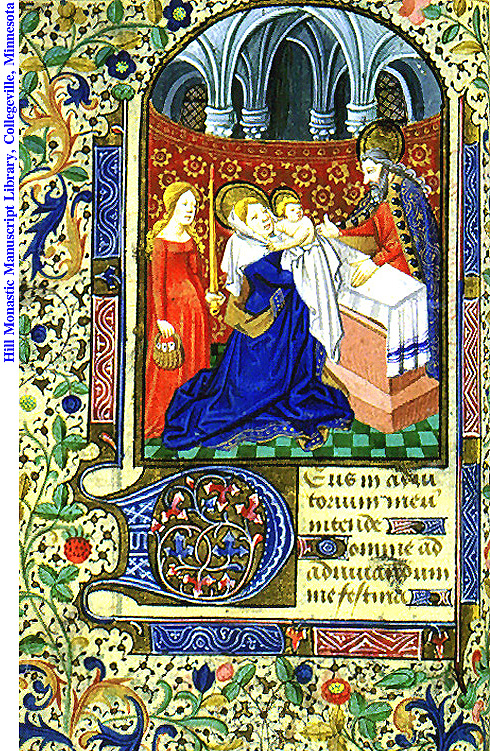 Hill Monastic Manuscript Library, Collegeville, Minnesota
Deus in adiu
torium meū
intende
Domine ad
adiuuandum
me festina